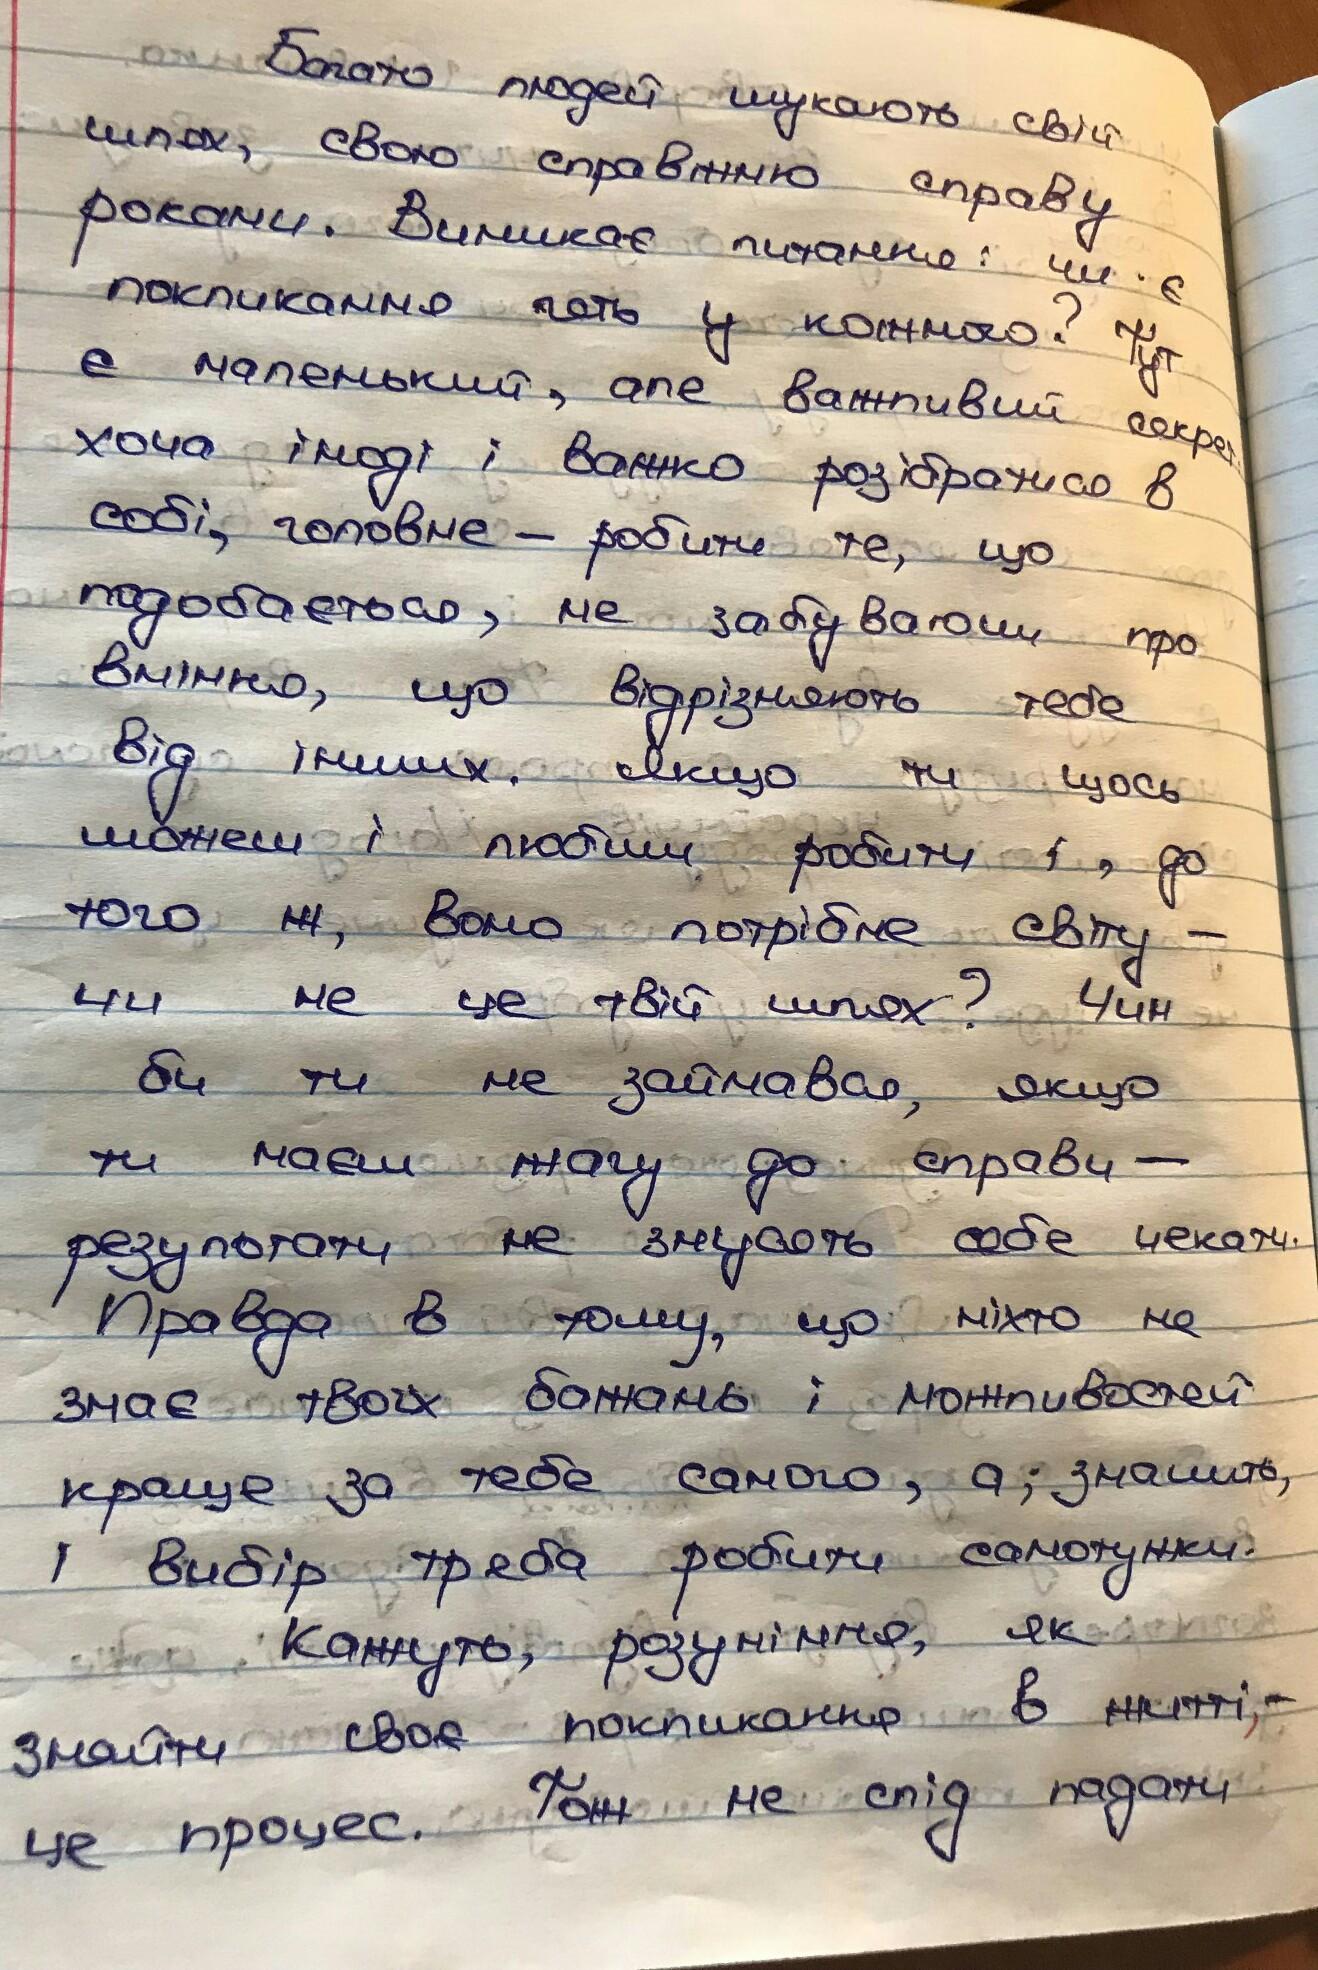 Багато людей шукають свій
шлях, свою справжню справу
роками. Виникає питання: чи є
покликання геть у кожного? Тут
є маленький, але важливий секрет:
хоча іноді і важко розібратися в
собі, головне – робити те, що
подобається, не забуваючи про
вміння, що відрізняють тебе
від інших. Якщо ти щось
можеш і любиш робити і, до
того ж, воно потрібне світу –
чи не це твій шлях? Чим
би ти не займався, якщо
ти маєш жагу до справи –
результати не змусять себе чекати.
Правда в тому, що ніхто не
знає твоїх бажань і можливостей
краще за тебе самого, а, значить,
і вибір треба робити самотужки.
Кажуть, розуміння, як
знайти своє покликання в житті, –
це процес. Тож не слід падати